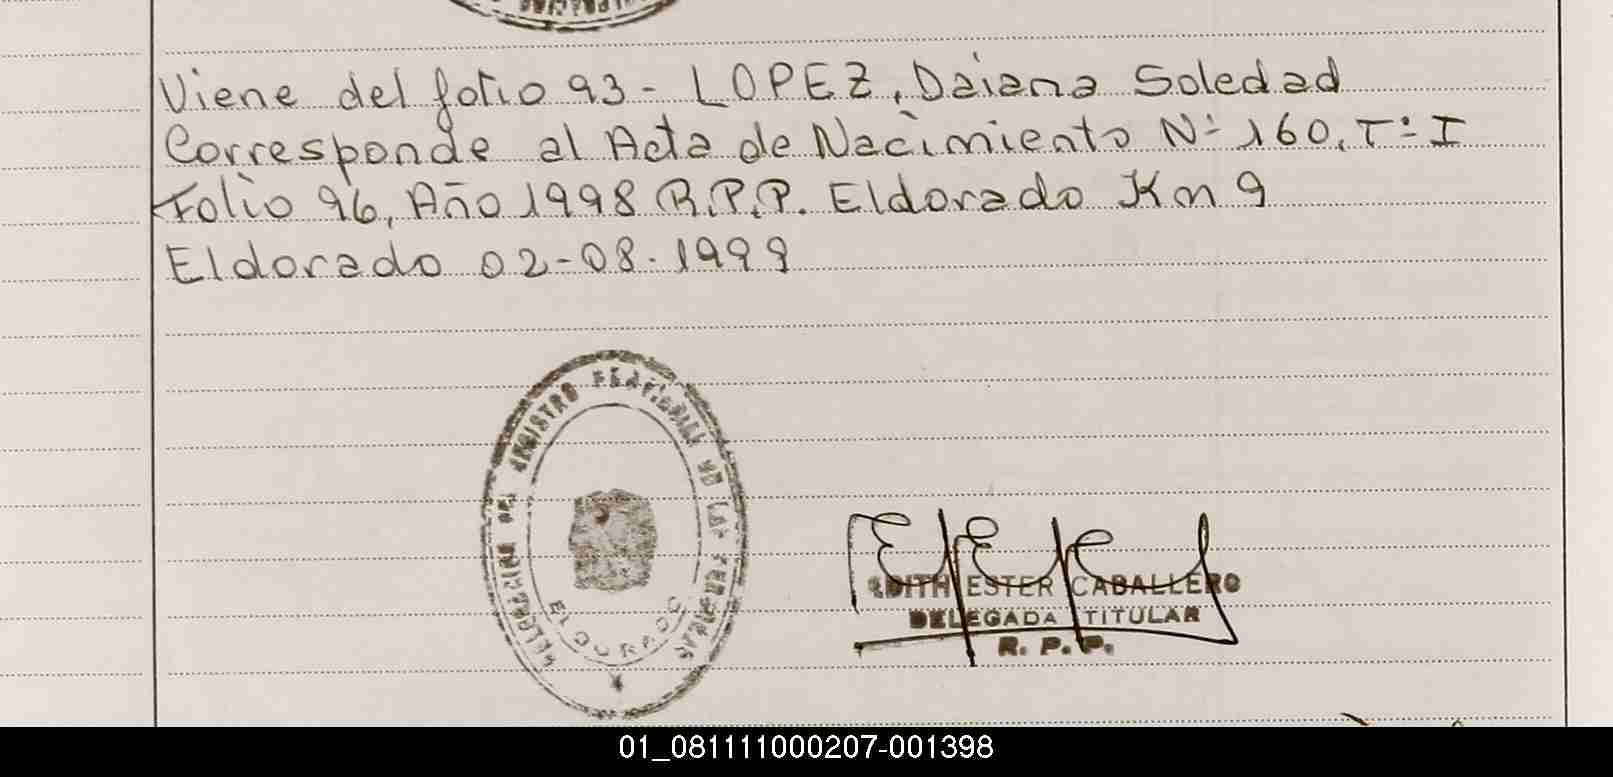 Viene del folio 93 - LOPEZ, Daiana Soledad
Corresponde al Acta de Nacimiento Nº 160, Tº I
Folio 96, Año 1998 R.P.P. Eldorado Km 9
Eldorado 02-08-1999
DELEGACION DEL REGISTRO PROVINCIAL DE LAS PERSONAS
ELDORADO
EDITH ESTER CABALLERO
DELEGADA TITULAR
R. P. P.
01_081111000207-001398